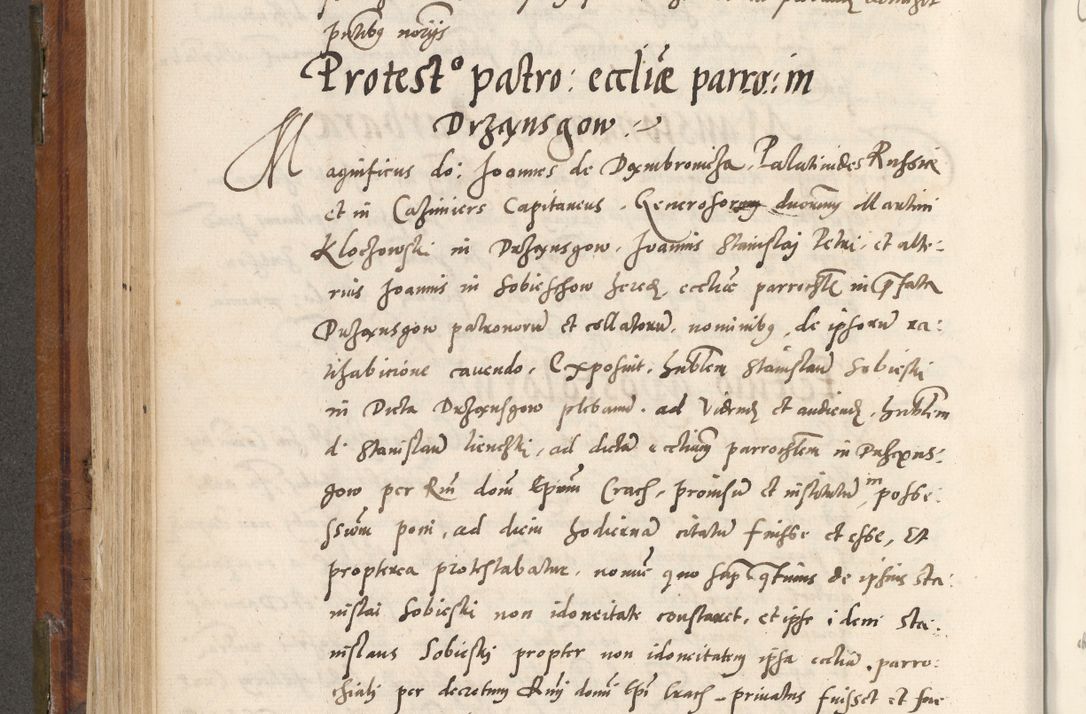 pntibus notariis
Protesto patro: eccliæ parro: in
Drzązsgow
Magnificus do: Joannes de Dąmbrowicza, Palatinides Russiæ
et in Cazimiers Capitaneus, Generosorum duorum Martini
Kloczowski in Drzązsgow, Joannis Stanislai Petri, et alte-
rius Joannis in Sobieschow hered, eccliæ parrochlis in præfata
Drzązsgow patronorum et collatorum, nominibus, de ipsorum ra:
tihabicione cavendo, Exposuit, hnblem Stanislaum Sobieski
in Dicta Drzązsgow plebanum, ad videndum et audiendum, hnblem
d. Stanislaum, ad dictam ecclīam parrochlem in Drzązs-
gow per Rm domi Epum Crach, promisum et institutum in posse-
ssiom poni, ad diem hodiernam citatum fuisse et esse, Et
propterea protestabatur, nomine quo supra quatinus de ipsius Sta:
nislai Sobieski non idoneitate constaret, et ipse idem Sta:
nislaus Sobieski propter non idoneitatem ipsa ecclia parro:
chiali per decretum Rmi domi Epi Crach privatus fuisset et sue